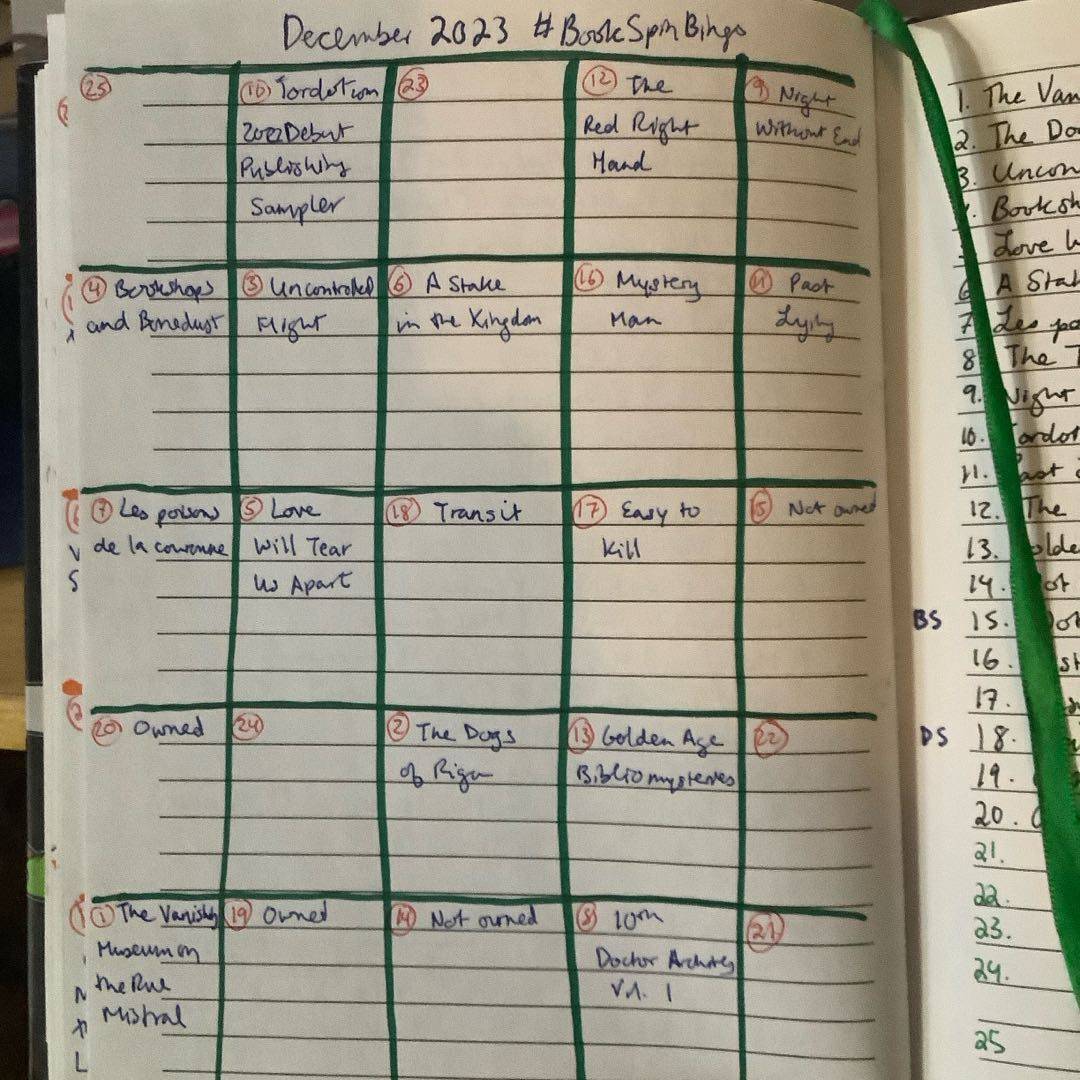 December 2023 #BookSpinBingo
25
10 Tordotcom
2022 Debut
Publishing
Sampler
23
12 The
Red Right
Hand
9 Night
Without End
4 Bookshops
and Bonedust
3 Uncontrolled
Flight
6 A Stake
in the Kingdom
16 Mystery
Man
11 Past
Lying
7 Les poisons
de la couronne
5 Love
Will Tear
Us Apart
18 Transit
17 Easy to
Kill
15 Not owned
20 Owned
24
2 The Dogs
of Riga
13 Golden Age
Bibliomysteries
22
1 The Vanishing
Museum on
the Rue
Mistral
19 Owned
14 Not owned
8 10th
Doctor Archives
Vol. 1
21
1. The Van
2. The Do
3. Uncon
4. Booksh
5 Love W
6 A Stak
7. Les po
8 The T
9. Night
10. Tordot
11. Past
12. The
13. olde
14. ot
BS 15. ot
16. st
17.
DS 18.
19.
20. O
21.
22.
23.
24.
25